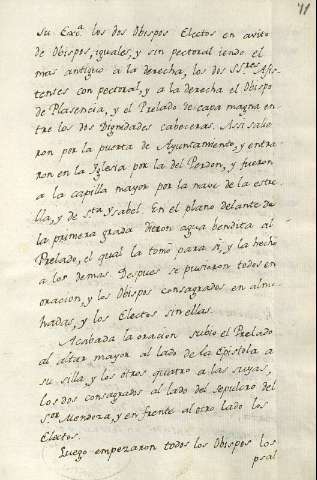 71
su Exc.ª los dos Obispos Electos en avito
de Obispos, iguales, y sin pectoral iendo el
mas antiguo a la derecha, los dos SS.res Asis-
tenses con pectoral, y a la derecha el Obispo
de Plasencia, y el Prelado de capa magna en-
tre los dos Dignidades caboceras. Assi salie
ron por la puerta de Ayuntamiento, y entra-
ron en la Iglesia por la del Perdon, y fueron
a la capilla mayor por la nave de la estre-
lla, y de sta. Ysabel. En el plano delante de
la primera grada dieron agua bendita al
Prelado, el qual la tomò para si, y la hechò
a los demas. Despues se pusieron todos en
oracion, y los Obispos consagrados en almu-
hadas, y los Electos sin ellas.
Acabada la oracion subio el Prelado
al altar mayor al lado de la Epistola a
su silla, y los otros quatro a las suyas,
los dos consagrados al lado del sepulcro del
S.or Mendoza, y en frente al otro lado los
Electos.
Luego empezaron todos los Obispos los
psal